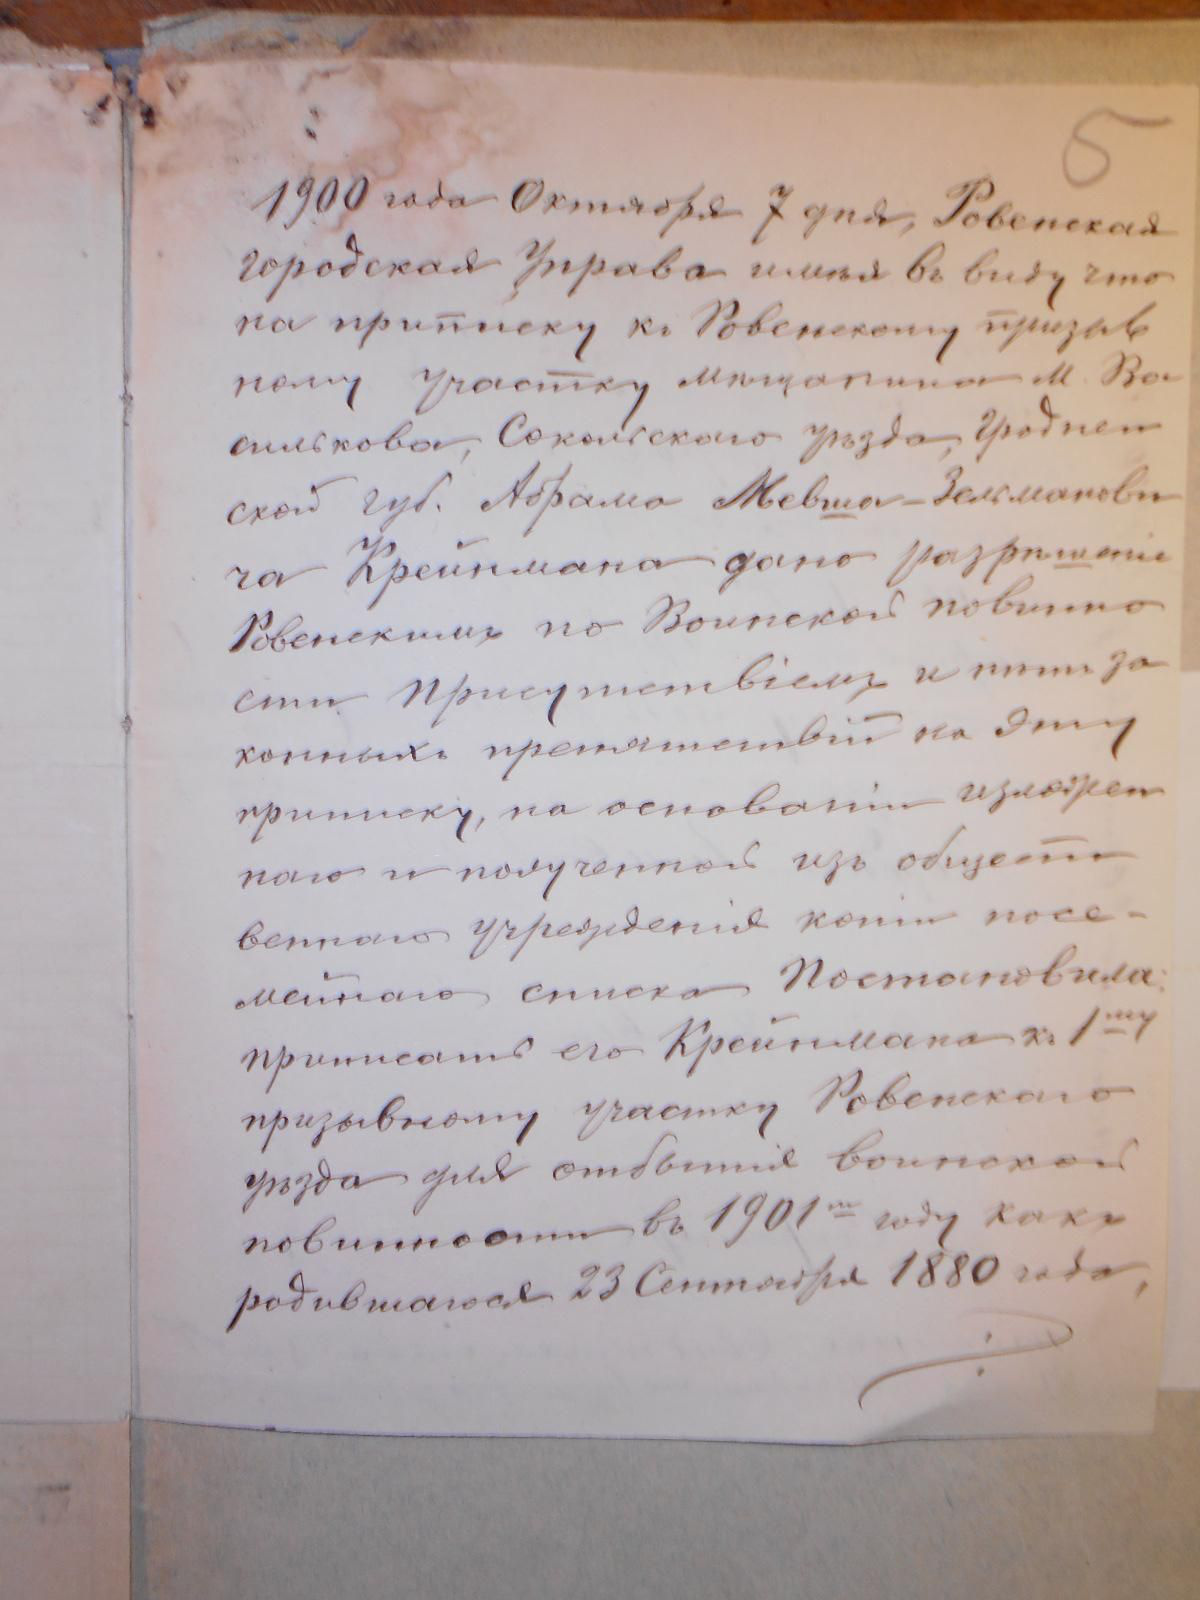 5
1900 года Октября 7 дня, Ровенская
городская Управа имѣя въ виду что
на приписку къ Ровенскому призыв
ному участку мѣщанина м. Ва
силькова, Сокольскаго уѣзда, Гроднен
ской губ. Абрама Мевша-Зельманови
ча Крейнмана дано разрѣшеніе
Ровенскимъ по Воинской повинно
сти Присутствіемъ и нѣтъ за
конныхъ препятствій на эту
приписку, на основаніи
наго и полученной изъ общест
веннаго учрежденія копіи посе-
мейнаго списка Постановила:
приписать его Крейнмана къ 1му
призывному участку Ровенскаго
уѣзда для отбытія воинской
повинности въ 1901м году какъ
родившагося 23 Сентября 1880 года,